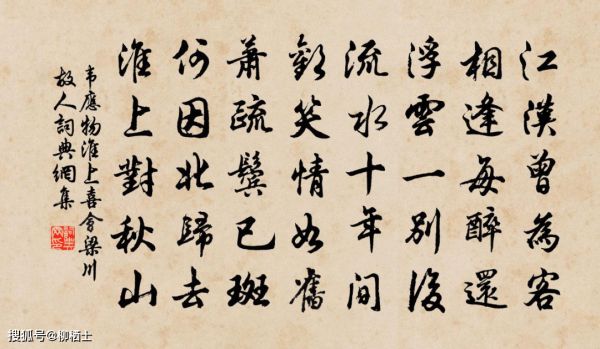 江漢曾為客
相逢每醉還
浮雲一別後
流水十年間
歡笑情如舊
蕭疏鬢已斑
何因北歸去
淮上對秋山
韋應物淮上喜會梁川
故人詞典網集
搜狐号@柳栖士